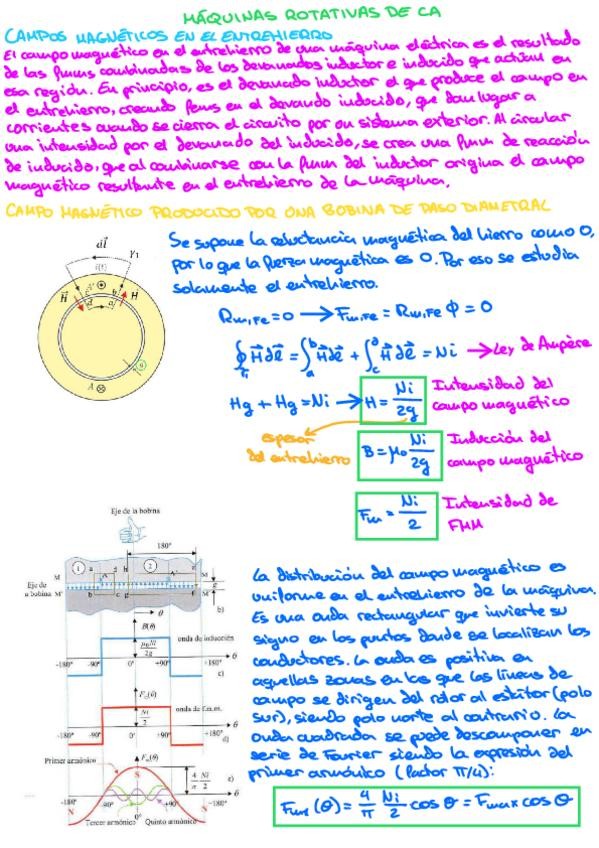 MÁQUINAS ROTATIVAS DE CA
CAMPOS MAGNÉTICOS EN EL ENTREHIERRO
El campo magnético en el entrehierro de una máquina eléctrica es el resultado
de las fmms combinadas de los devanados inductor e inducido que actúan en
esa región. En principio, es el devanado inductor el que produce el campo en
el entrehierro, creando fems en el devanado inducido, que dan lugar a
corrientes cuando se cierra el circuito por su sistema exterior. Al circular
una intensidad por el devanado del inducido, se crea una fmm de reacción
de inducido, que al combinarse con la fmm del inductor origina el campo
magnético resultante en el entrehierro de la máquina.
CAMPO MAGNÉTICO PRODUCIDO POR UNA BOBINA DE PASO DIAMETRAL
Se supone la reluctancia magnética del hierro como 0,
por lo que la fuerza magnética es 0. Por eso se estudia
solamente el entrehierro.
dl
γ1
i(t)
H A' H
c b
d a
g
A
Rm,Fe = 0 → Fm,Fe = Rm,Fe Φ = 0
∮γ1 H dl = ∫a^b H dl + ∫c^d H dl = Ni → Ley de Ampère
Hg + Hg = Ni → H = Ni/2g
Intensidad del
campo magnético
espesor
del entrehierro
B = μ0 Ni/2g
Inducción del
campo magnético
Fm = Ni/2
Intensidad de
FMM
Eje de la bobina
180°
1 a d h 2 A' e
M M
Eje de
a bobina M' b c g f M'
g
θ
b)
B(θ)
μ0Ni/2g
onda de inducción
-180° -90° 0° +90° +180° θ
c)
Fm(θ)
Ni/2
onda de f.m.m.
-180° -90° 0° +90° +180° θ
d)
Primer armónico
Fm(θ)
S
4/π Ni/2
e)
-180° -90° 0° +90° +180° θ
N S N
Tercer armónico Quinto armónico
La distribución del campo magnético es
uniforme en el entrehierro de la máquina.
Es una onda rectangular que invierte su
signo en los puntos donde se localizan los
conductores. La onda es positiva en
aquellas zonas en las que las líneas de
campo se dirigen del rotor al estátor (polo
sur), siendo polo norte al contrario. La
onda cuadrada se puede descomponer en
serie de Fourier siendo la expresión del
primer armónico (factor π/4):
Fm1 (θ) = 4/π Ni/2 cos θ = Fmax cos θ